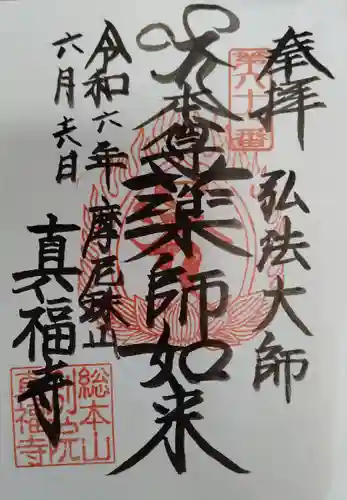 奉拝
弘法大師
第六十番
大本尊
薬師如来
摩尼珠山
真福寺
令和六年
六月六日
総本山
別院
真福寺